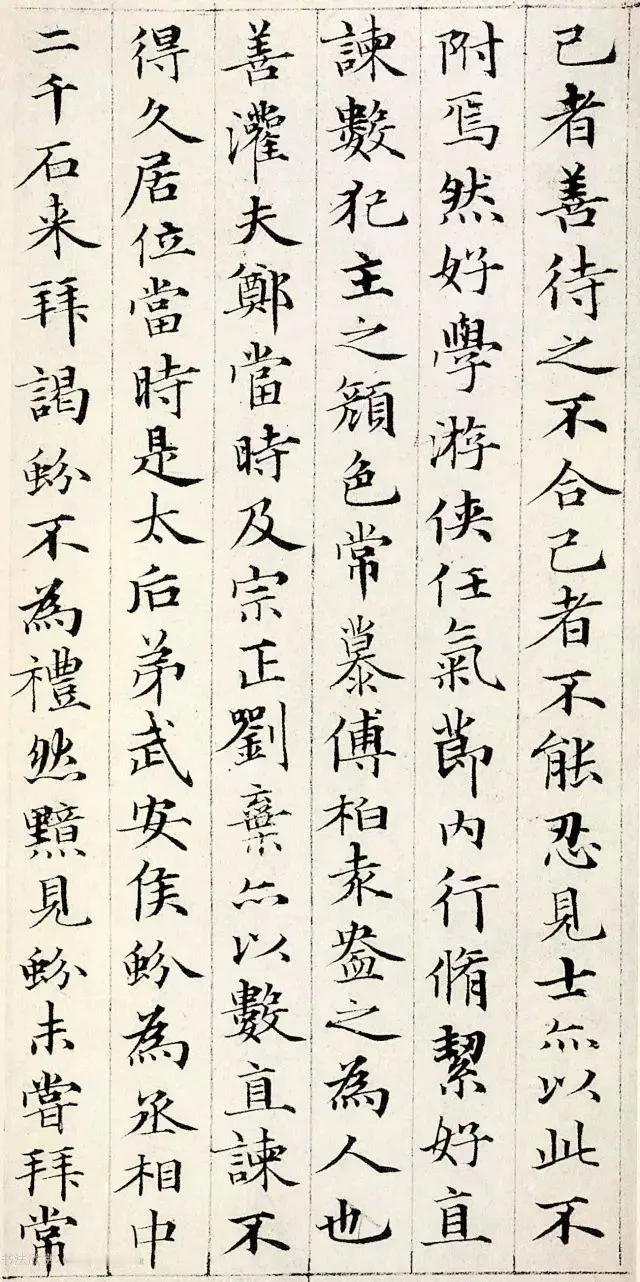 己者善待之不合己者不能忍見士亦以此不
附焉然好學游俠任氣節內行脩絜好直
諫數犯主之顏色常慕傅柏袁盎之為人也
善灌夫鄭當時及宗正劉棄亦以數直諫不
得久居位當時是太后弟武安侯蚡為丞相中
二千石来拜謁蚡不為禮然黯見蚡未嘗拜常
书法